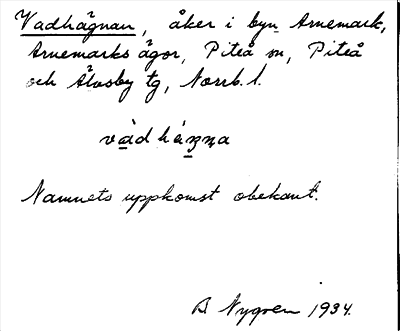 Vadhägnan, åker i byn Arnemark,
Arnemarks ägor, Piteå sn, Piteå
och Älvsby tg, Norrb. l.
Namnets uppkomst obekant.
B Nygren 1934.